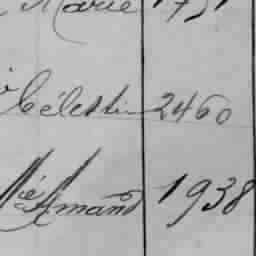 Marie
Célestin 2460
Amand 1938